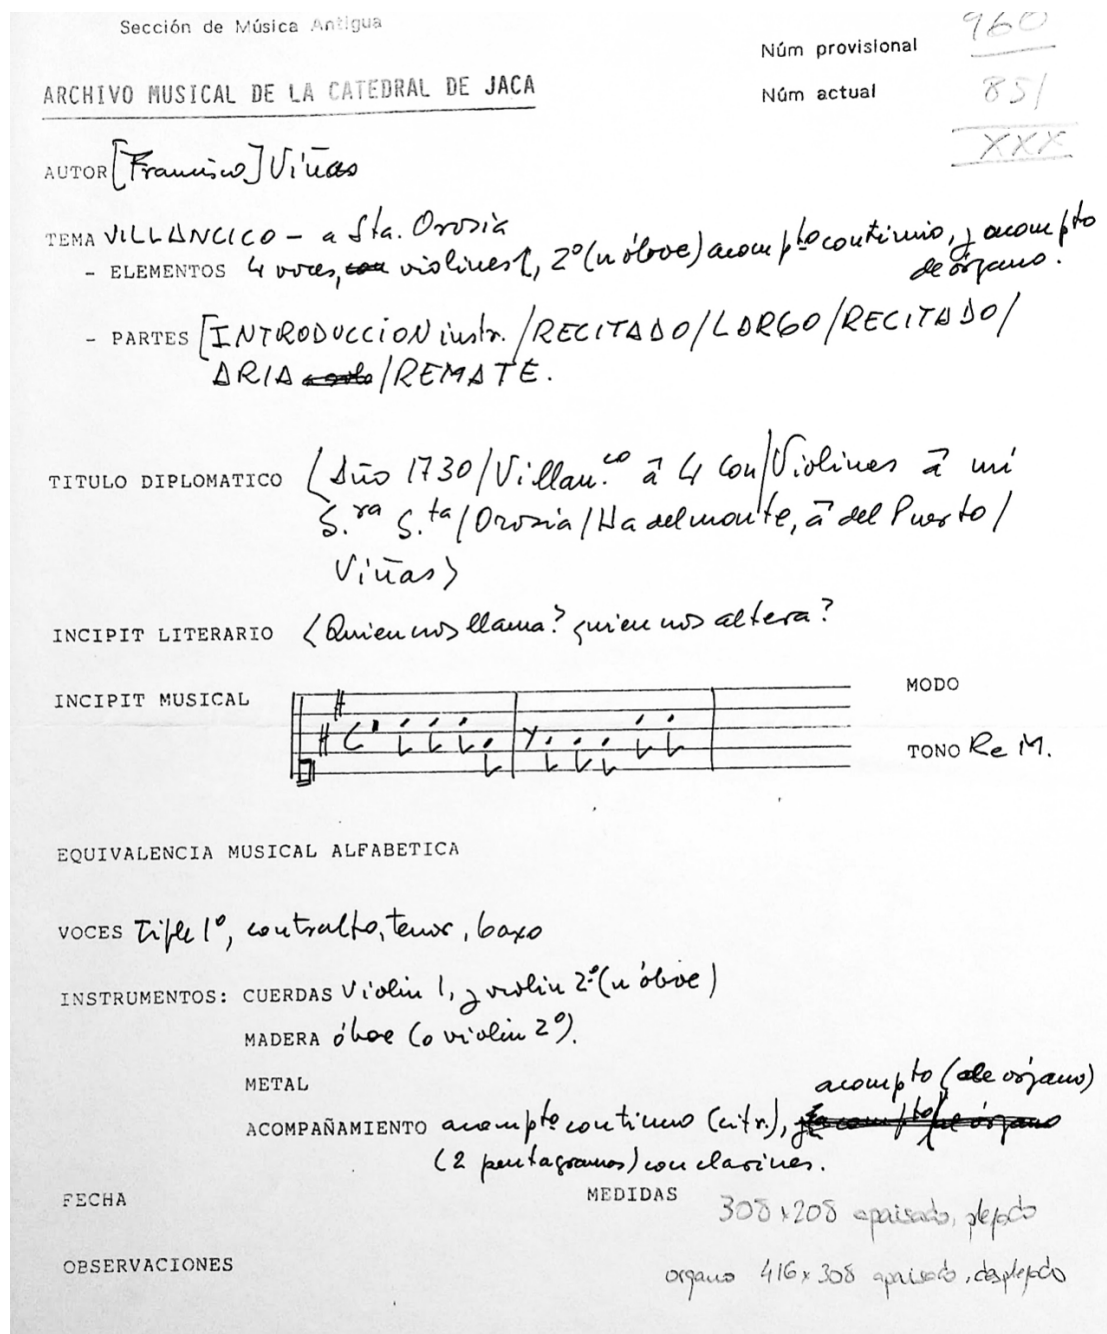 Sección de Música Antigua
960
Núm provisional
ARCHIVO MUSICAL DE LA CATEDRAL DE JACA
Núm actual 851
XXX
AUTOR [Francisco] Viñas
TEMA VILLANCICO - a Sta. Orosia
- ELEMENTOS 4 voces, con violines 1, 2º (u óboe) acompto continuo, y acompto
de órgano.
- PARTES [INTRODUCCION instr. /RECITADO/LARGO/RECITADO/
ARIA a solo /REMATE.
TITULO DIPLOMATICO (Año 1730/Villan.co â 4 con/Violines â mi
S.ra S.ta/Orosia/Ha del monte, â del Puerto/
Viñas>
INCIPIT LITERARIO <Quien nos llama? quien nos altera?
INCIPIT MUSICAL
MODO
TONO Re M.
EQUIVALENCIA MUSICAL ALFABETICA
VOCES Tiple 1º, contralto, tenor, baxo
INSTRUMENTOS: CUERDAS Violin 1, y violin 2º (u óboe)
MADERA óboe (o violin 2º).
METAL
acompto (de órgano)
ACOMPAÑAMIENTO acompto continuo (cifr.),
(2 pentagramas) con clarines.
FECHA
MEDIDAS 308 x 208 apaisado, plegado
OBSERVACIONES
organo 416 x 308 apaisado, desplegado